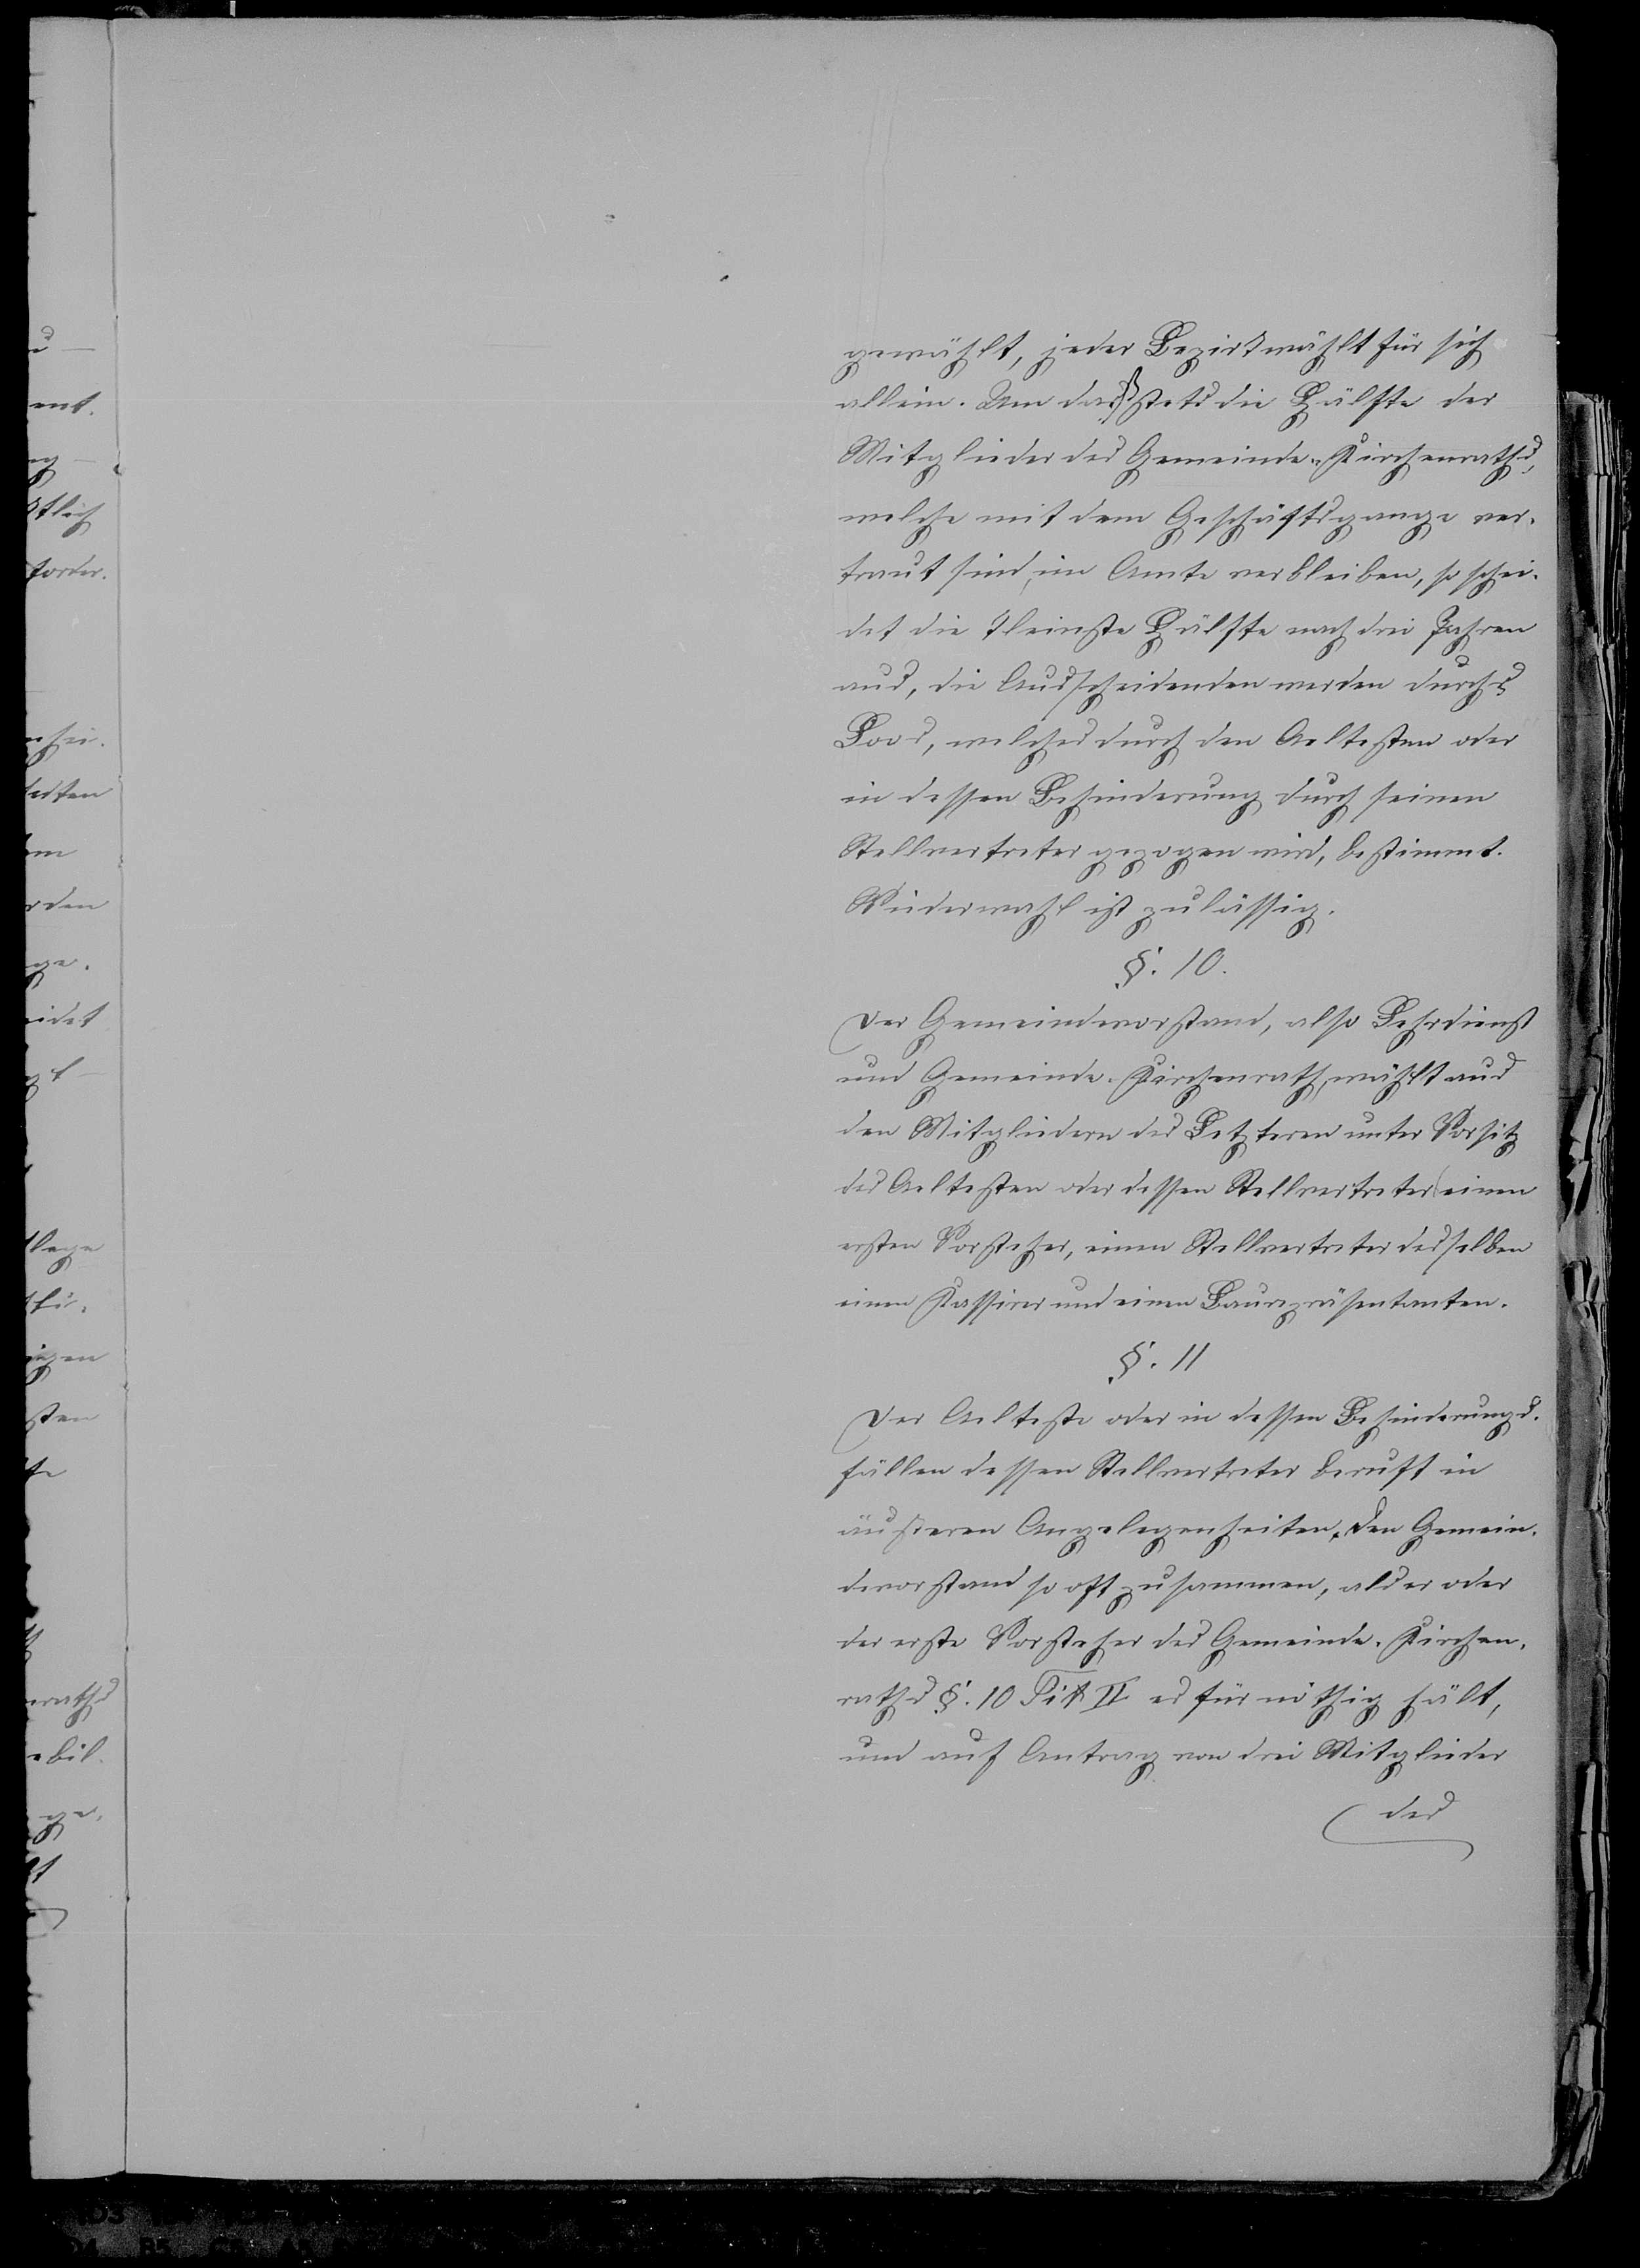 gewählt, jeder Bezirk wählt für sich
allein. Um daß stets die Hälfte der
Mitglieder des Gemeinde-Kirchenraths,
welche mit dem Geschäftsgange ver-
traut sind, im Amte verbleiben, so schei-
det die kleinste Hälfte nach drei Jahren
aus, die Ausscheidenden werden durchs
Loos, welches durch den Aeltesten oder
in dessen Behinderung durch seinen
Stellvertreter gezogen wird, bestimmt.
Wiederwahl ist zulässig.
§. 10.
Der Gemeindevorstand, also Lehrdienst
und Gemeinde-Kirchenrath, wählt aus
den Mitgliedern des Letzteren unter Vorsitz
des Aeltesten oder dessen Stellvertreter einen
ersten Vorsteher, einen Stellvertreter desselben
einen Kassirer und einen Baurepräsentanten.
§. 11
Der Aelteste oder in dessen Behinderungs-
fällen dessen Stellvertreter beruft in
äusseren Angelegenheiten, den Gemein-
devorstand so oft zusammen, als er oder
der erste Vorsteher des Gemeinde-Kirchen-
raths §. 10 Tit II es für nöthig hält,
und auf Antrag von drei Mitglieder
des
ent.
tlich
forder.
den
lege
sten
raths
bil.
ge.